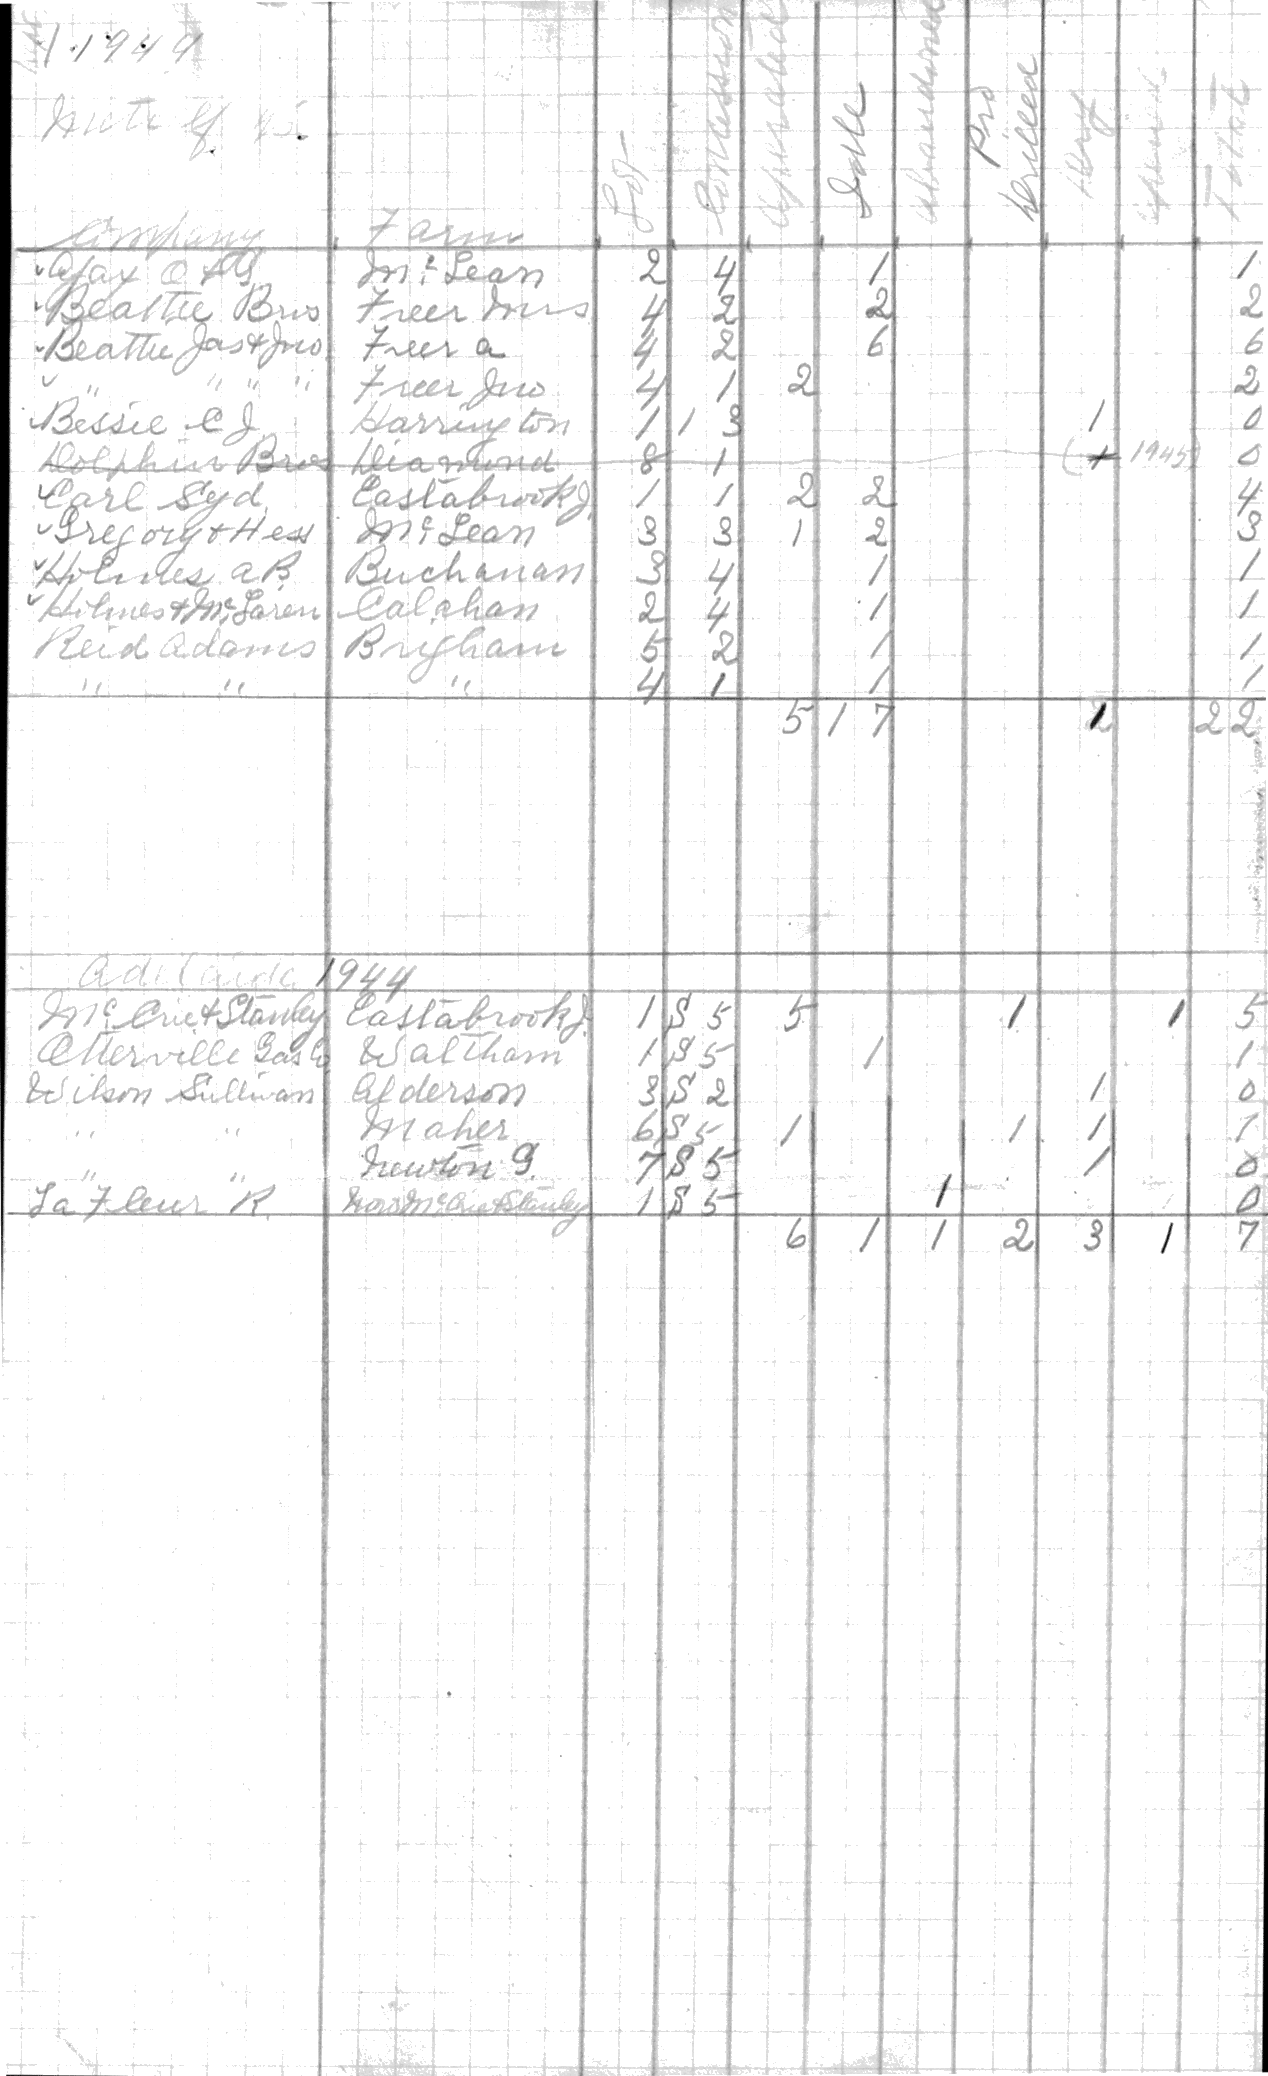 1944
Company Farm Lot Concession Operated Idle Abandoned Pro Drilled Dry Total
Ajax O & G McLean 2 4 1 1
Beattie Bros Freer Mrs 4 2 2 2
Beattie Jas & Jno Freer A 4 2 6 6
" " " " Freer Jno 4 1 2 2
Bessie C J Harrington 11 3 1 0
Dolphin Bros Diamond 8 1 (1 1945) 0
Earl Syd Eastabrook J. 1 1 2 2 4
Gregory & Hess McLean 3 3 1 2 3
Holmes A B Buchanan 3 4 1 1
Holmes & McLaren Calahan 2 4 1 1
Reid Adams Brigham 5 2 1 1
" " " 4 1 1 1
5 17 1 22
Adelaide 1944
McCrie & Stanley Eastabrook J. 1 S 5 5 1 1 5
Otterville Gas Co Waltham 1 S 5 1 1
Wilson Sullivan Alderson 3 S 2 1 0
" " Maher 6 S 5 1 1 1 1
" " Newton G. 7 S 5 1 0
La Fleur R. McCrie & Stanley 1 S 5 1 0
6 1 1 2 3 1 7